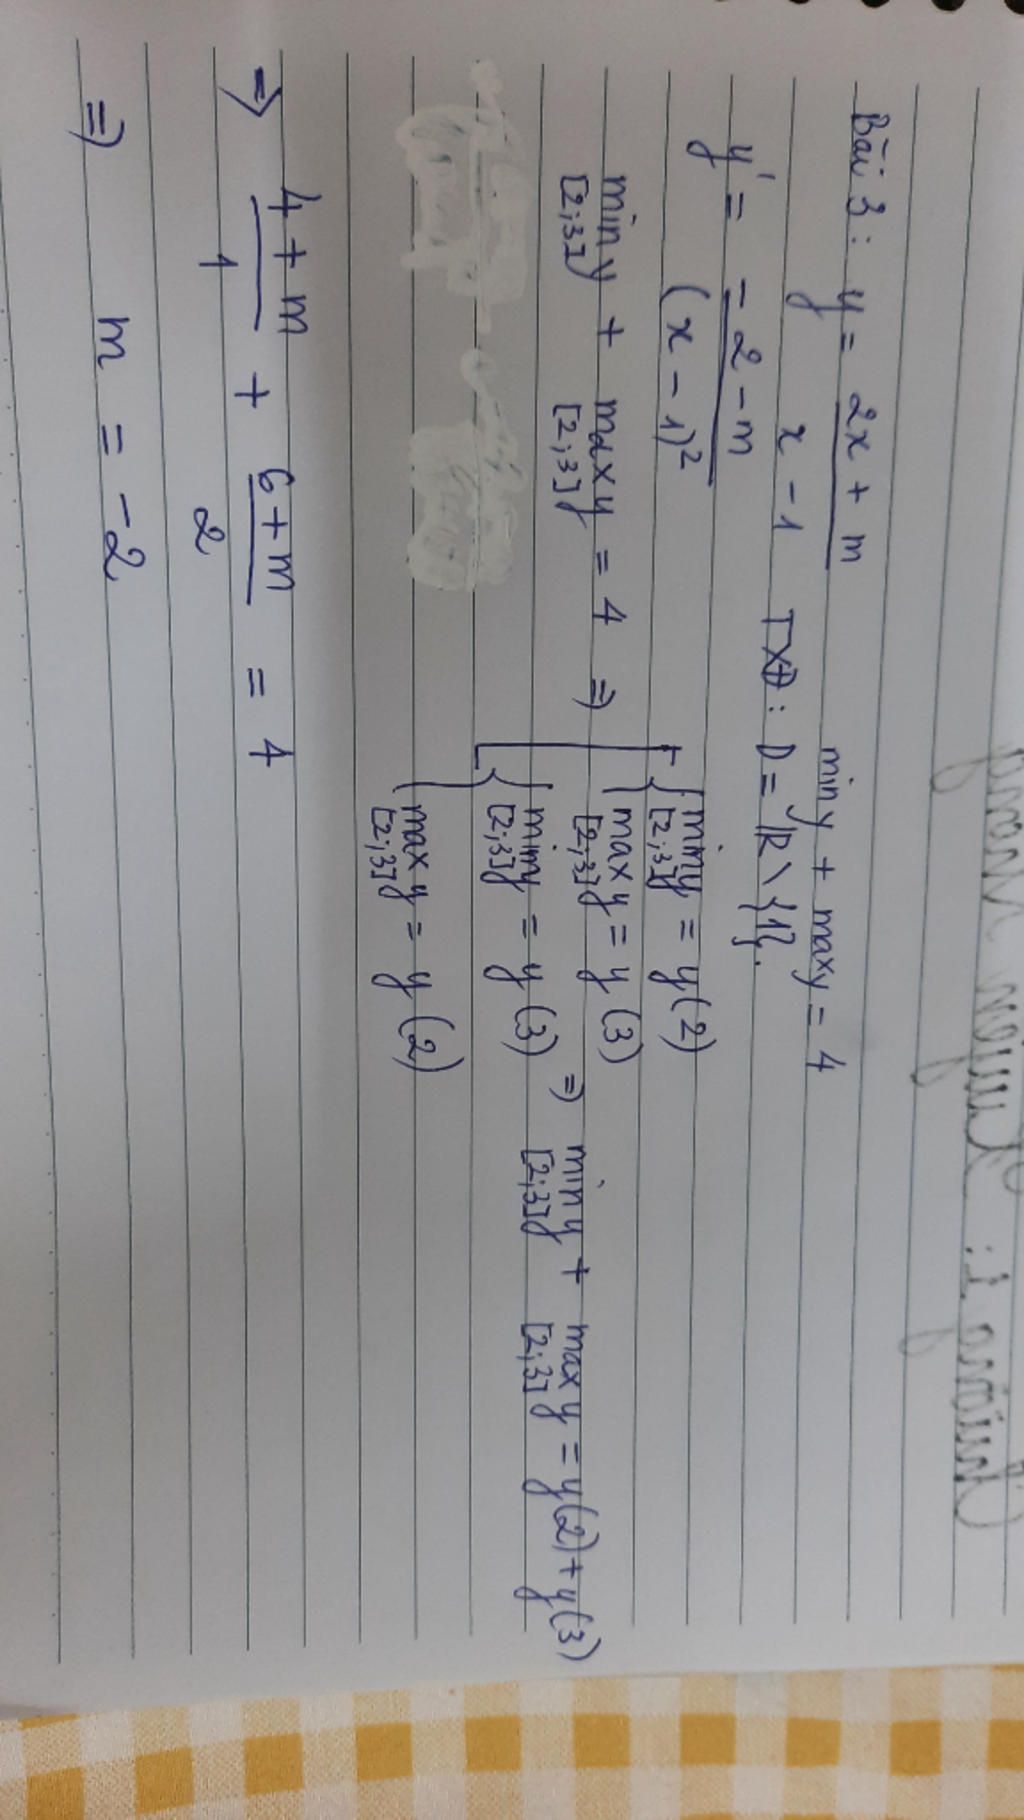 Bài 3 : y = 2x + m / x - 1    min y + max y = 4
TXĐ : D = ℝ \ {1}.
y' = -2 - m / (x - 1)²
min y [2;3] + max y [2;3] = 4 ⇒ [ { min y [2;3] = y(2)
max y [2;3] = y(3)
{ min y [2;3] = y(3)
max y [2;3] = y(2)
⇒ min y [2;3] + max y [2;3] = y(2) + y(3)
⇒ 4 + m / 1 + 6 + m / 2 = 4
⇒ m = -2